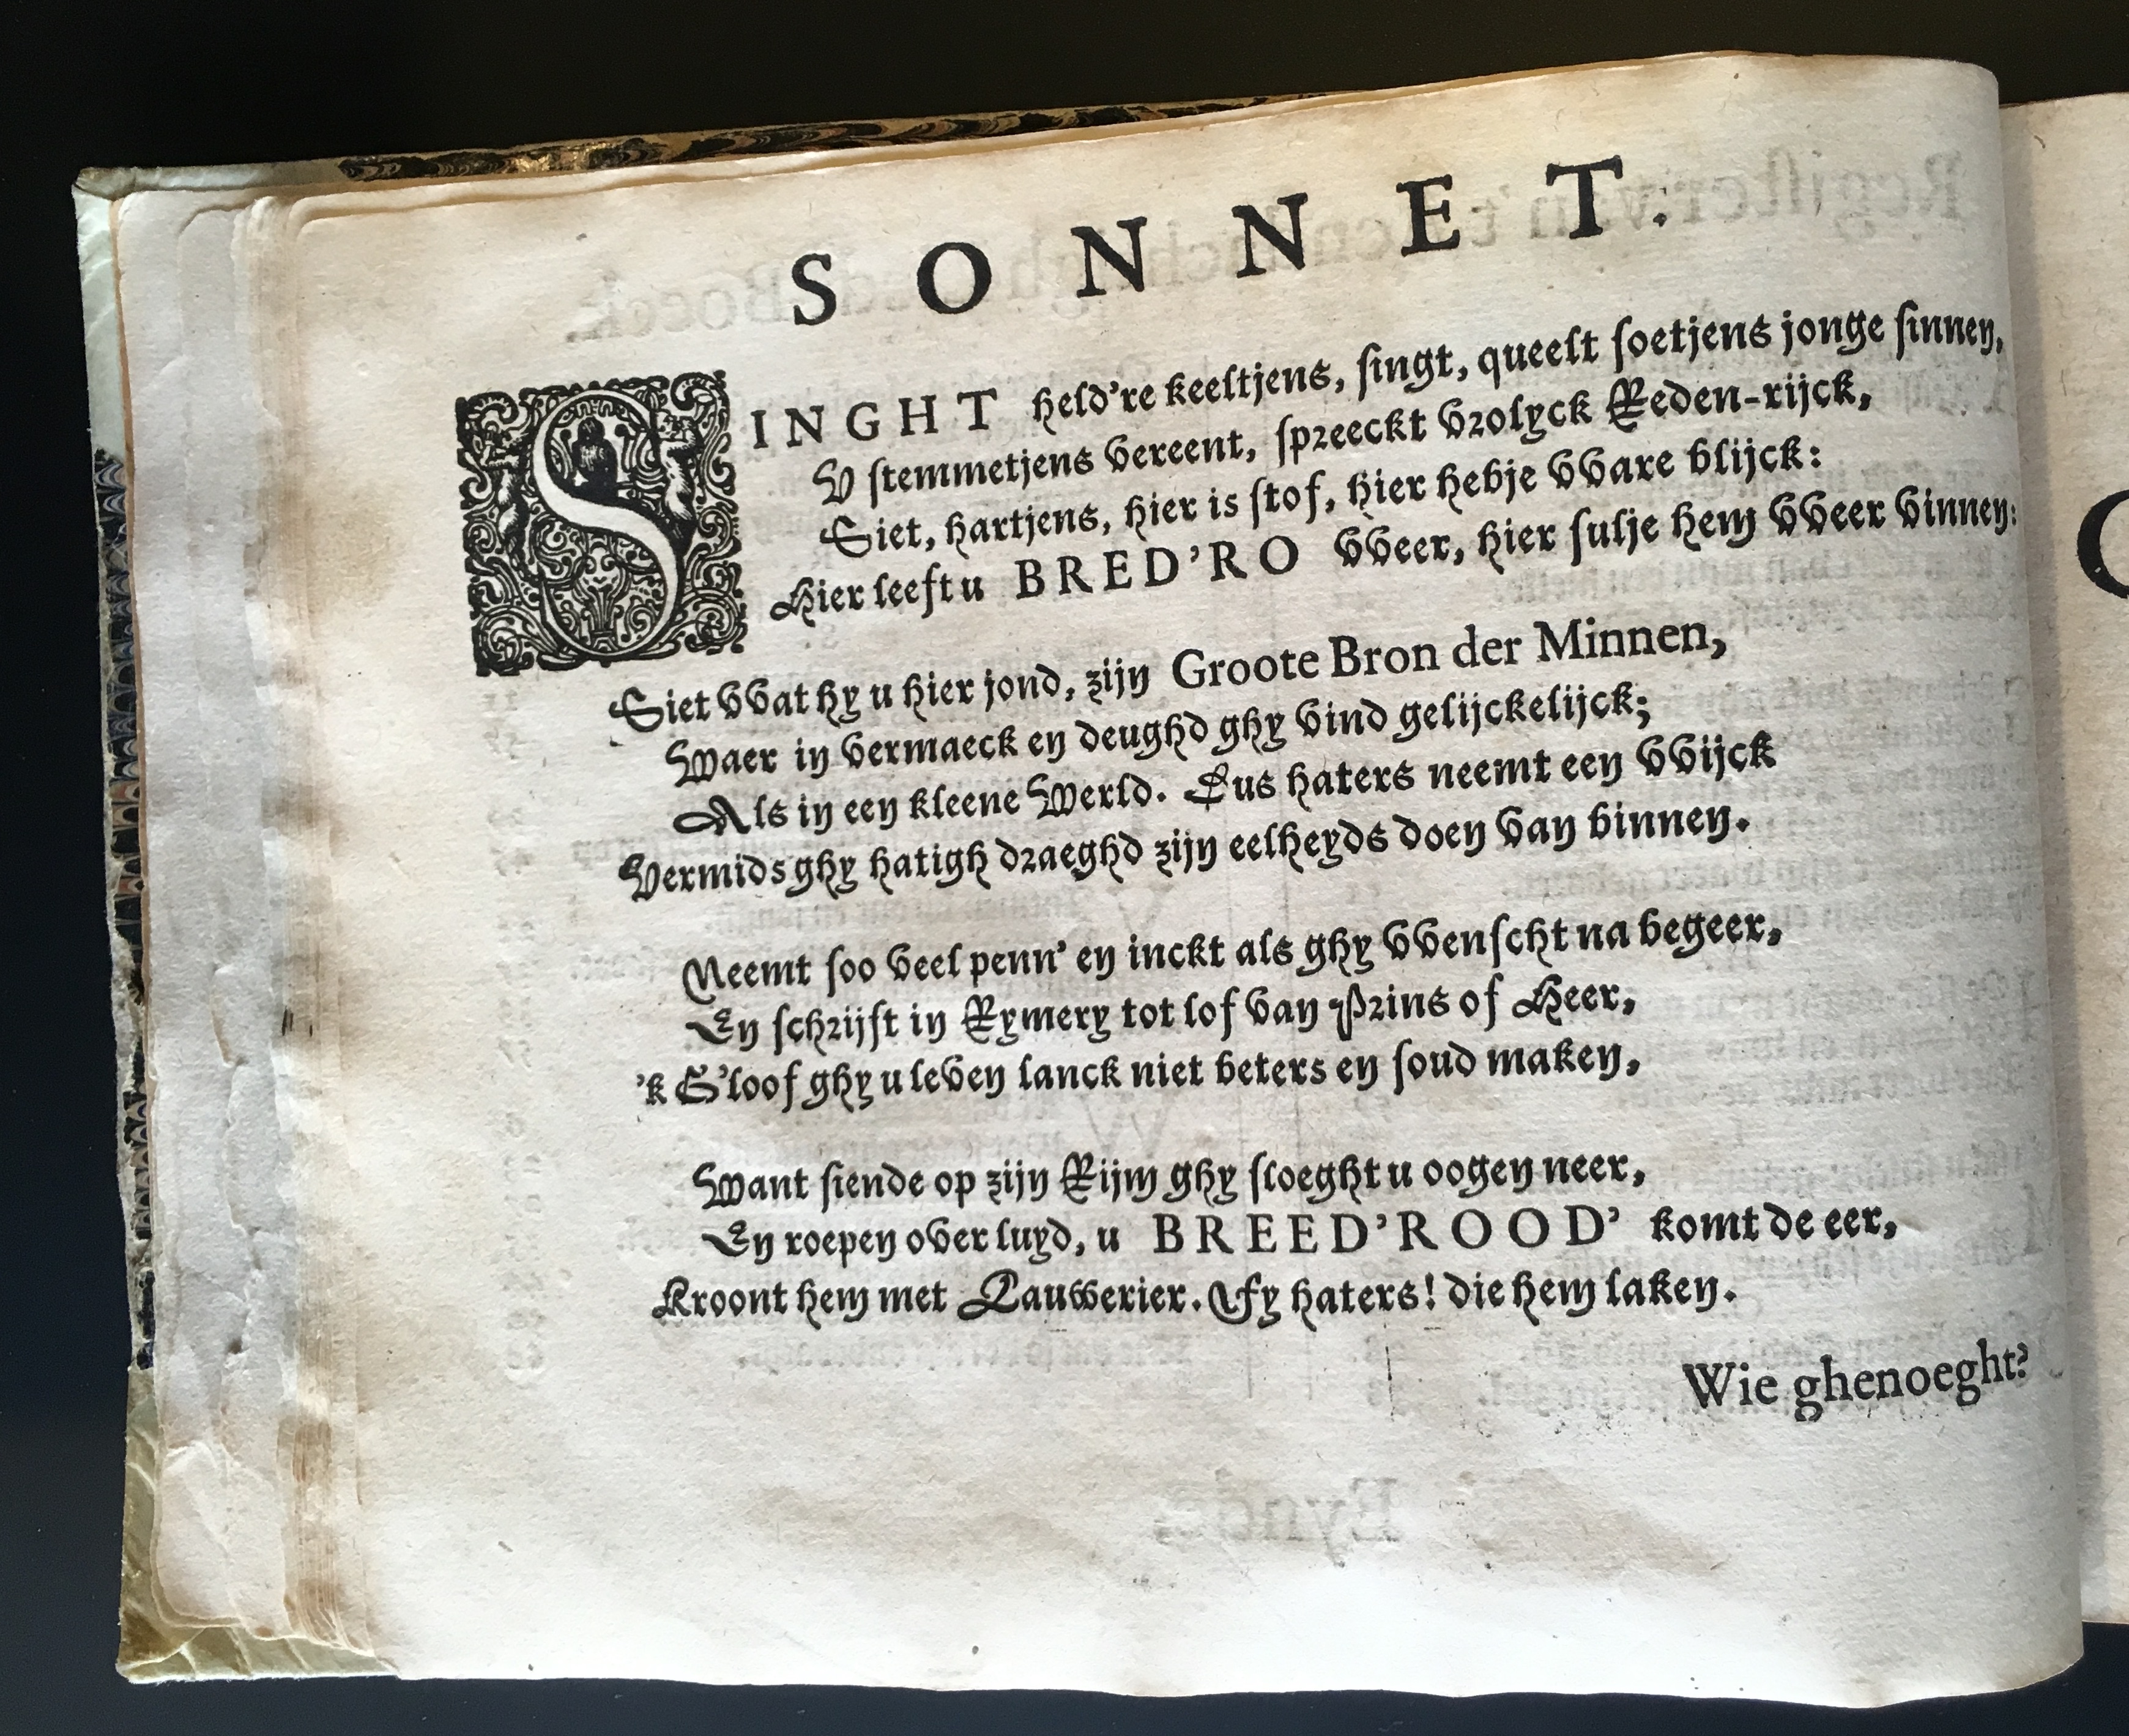 SONNET.
SINGHT held're keeltjens, singt, queelt soetjens jonge sinnen,
V stemmetjens vereent, spreeckt vrolyck Reden-rijck,
Siet, hartjens, hier is stof, hier hebje vvare blijck:
Hier leeft u BRED'RO vveer, hier sulje hem vveer vinnen:
Siet vvat hy u hier jond, zijn Groote Bron der Minnen,
Waer in vermaeck en deughd ghy vind gelijckelijck;
Als in een kleene Werld. Dus haters neemt een vvijck
Vermids ghy hatigh draeghd zijn eelheyds doen van binnen.
Neemt soo veel penn' en inckt als ghy vvenscht na begeer,
En schrijft in Rymery tot lof van Prins of Heer,
'k G'loof ghy u leven lanck niet beters en soud maken,
Want siende op zijn Rijm ghy sloeght u oogen neer,
En roepen over luyd, u BREED'ROOD' komt de eer,
Kroont hem met Lauwerier. Fy haters! die hem laken.
Wie ghenoeght?